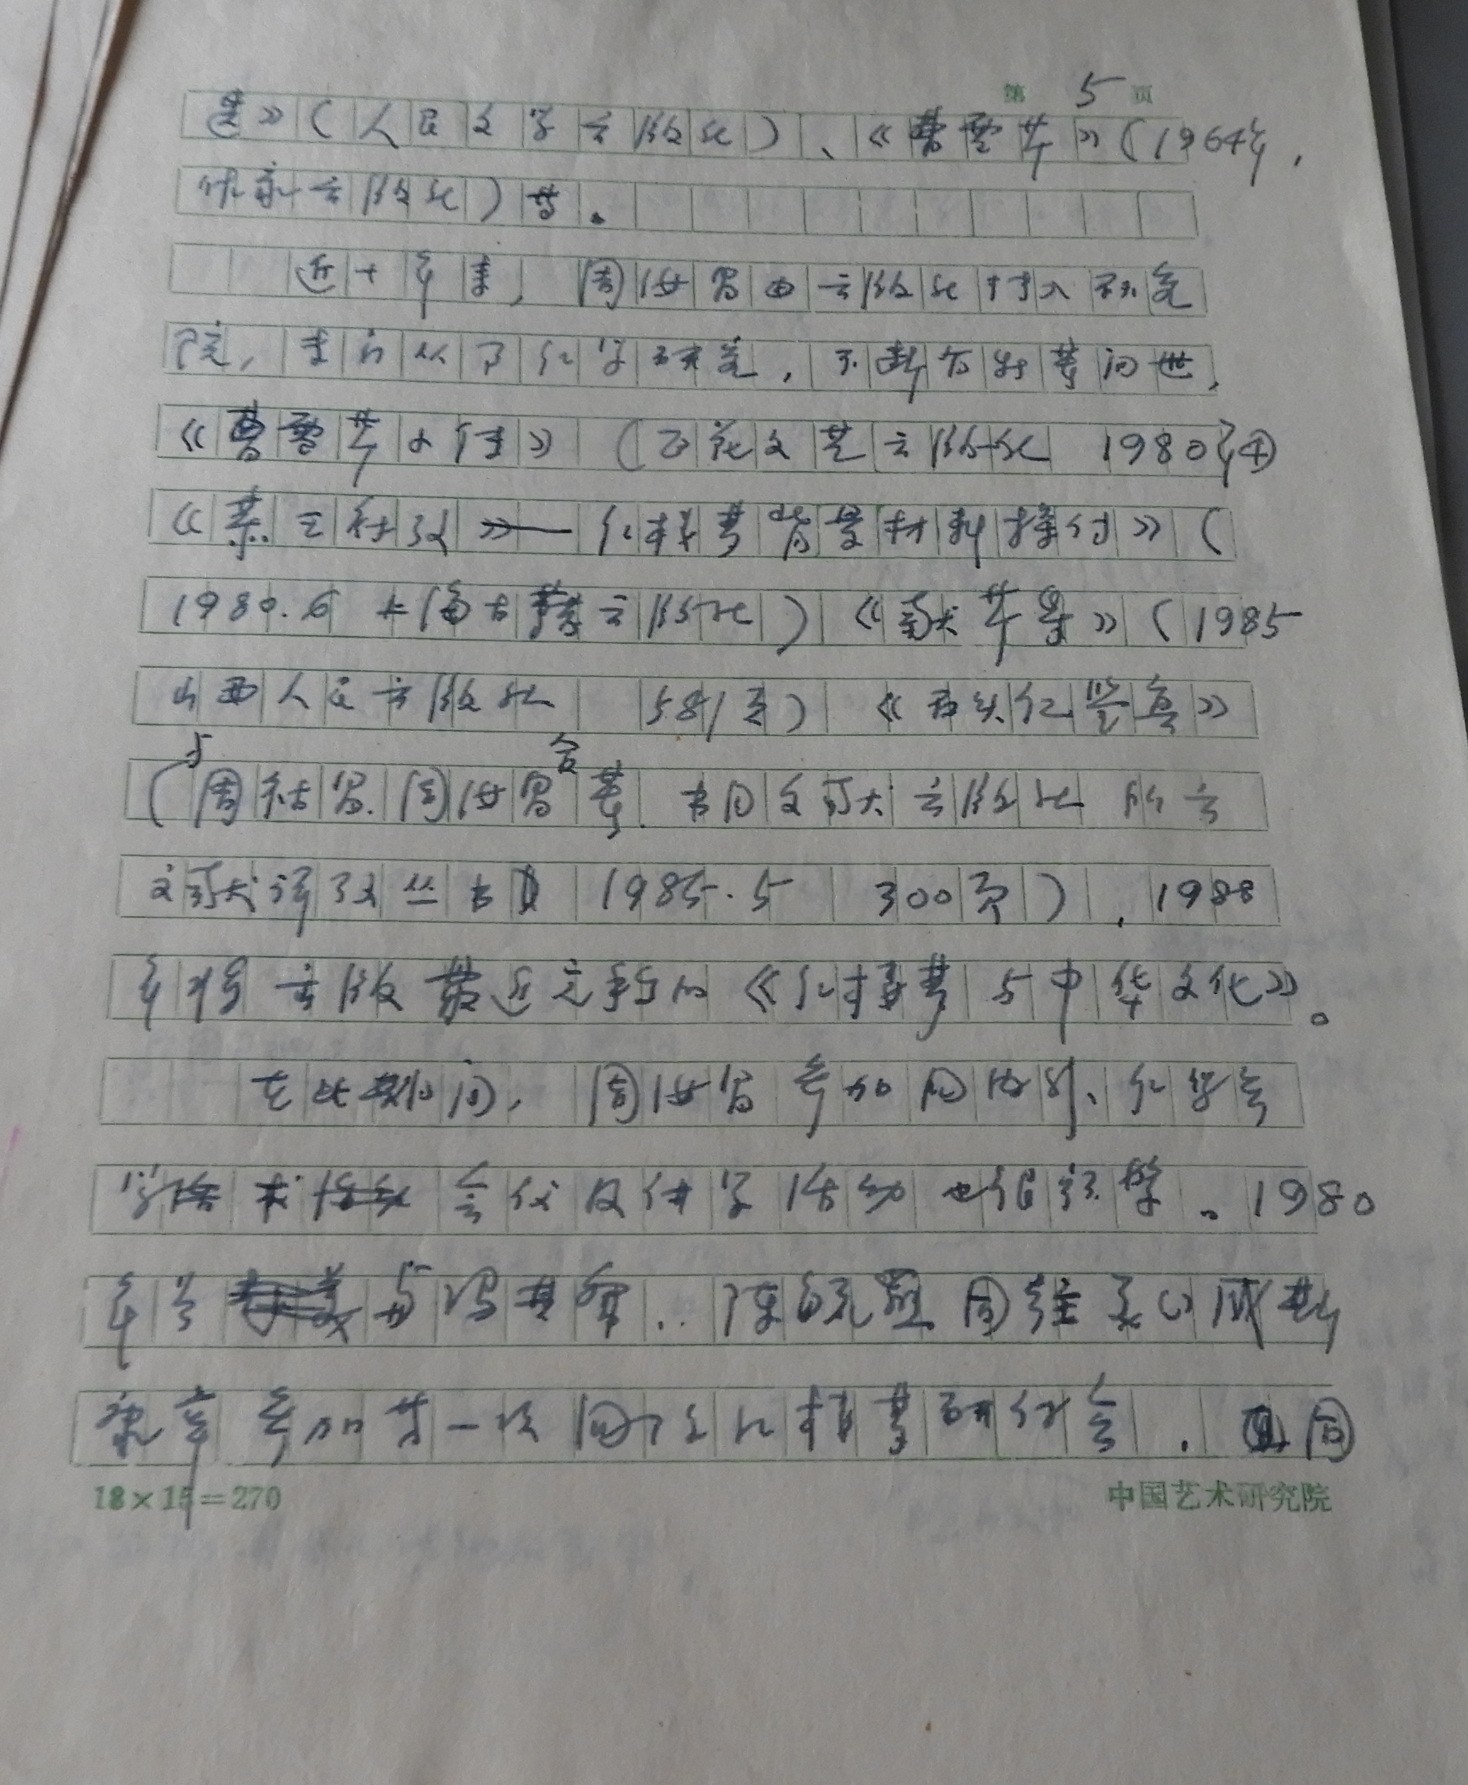 第 5 页
选》(人民文学出版社)、《曹雪芹》(1964年,
作家出版社)等。
近十年来,周汝昌由出版社转入研究
院,专门从事红学研究,不断有新著问世,
《曹雪芹小传》(百花文艺出版社 1980年④
《恭王府考》——红楼梦背景材料探讨》(
1980.6 上海古籍出版社)《献芹集》(1985
山西人民出版社 581页)《石头记鉴真》
(与周祜昌.周汝昌合著.书目文献出版社
文献研究丛书 1985.5 300页),1988
年将出版最近完稿的《红楼梦与中华文化》。
在此期间,周汝昌参加国内外、红学
学术会议及讲学活动也很频繁。1980
年与冯其庸..陈毓罴 周
参加第一次国际红楼梦研讨会, 周
18×15=270
中国艺术研究院